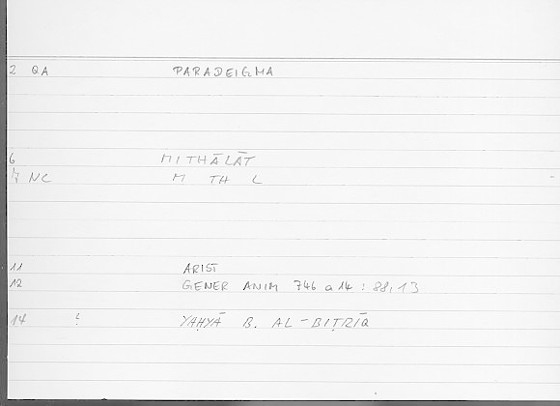 2 QA PARADEIGMA
6 MITHĀLĀT
7 NC M TH L
11 ARIST
12 GENER ANIM 746 a 14 : 88,13
14 ? YAḤYĀ B. AL-BIṬRĪQ